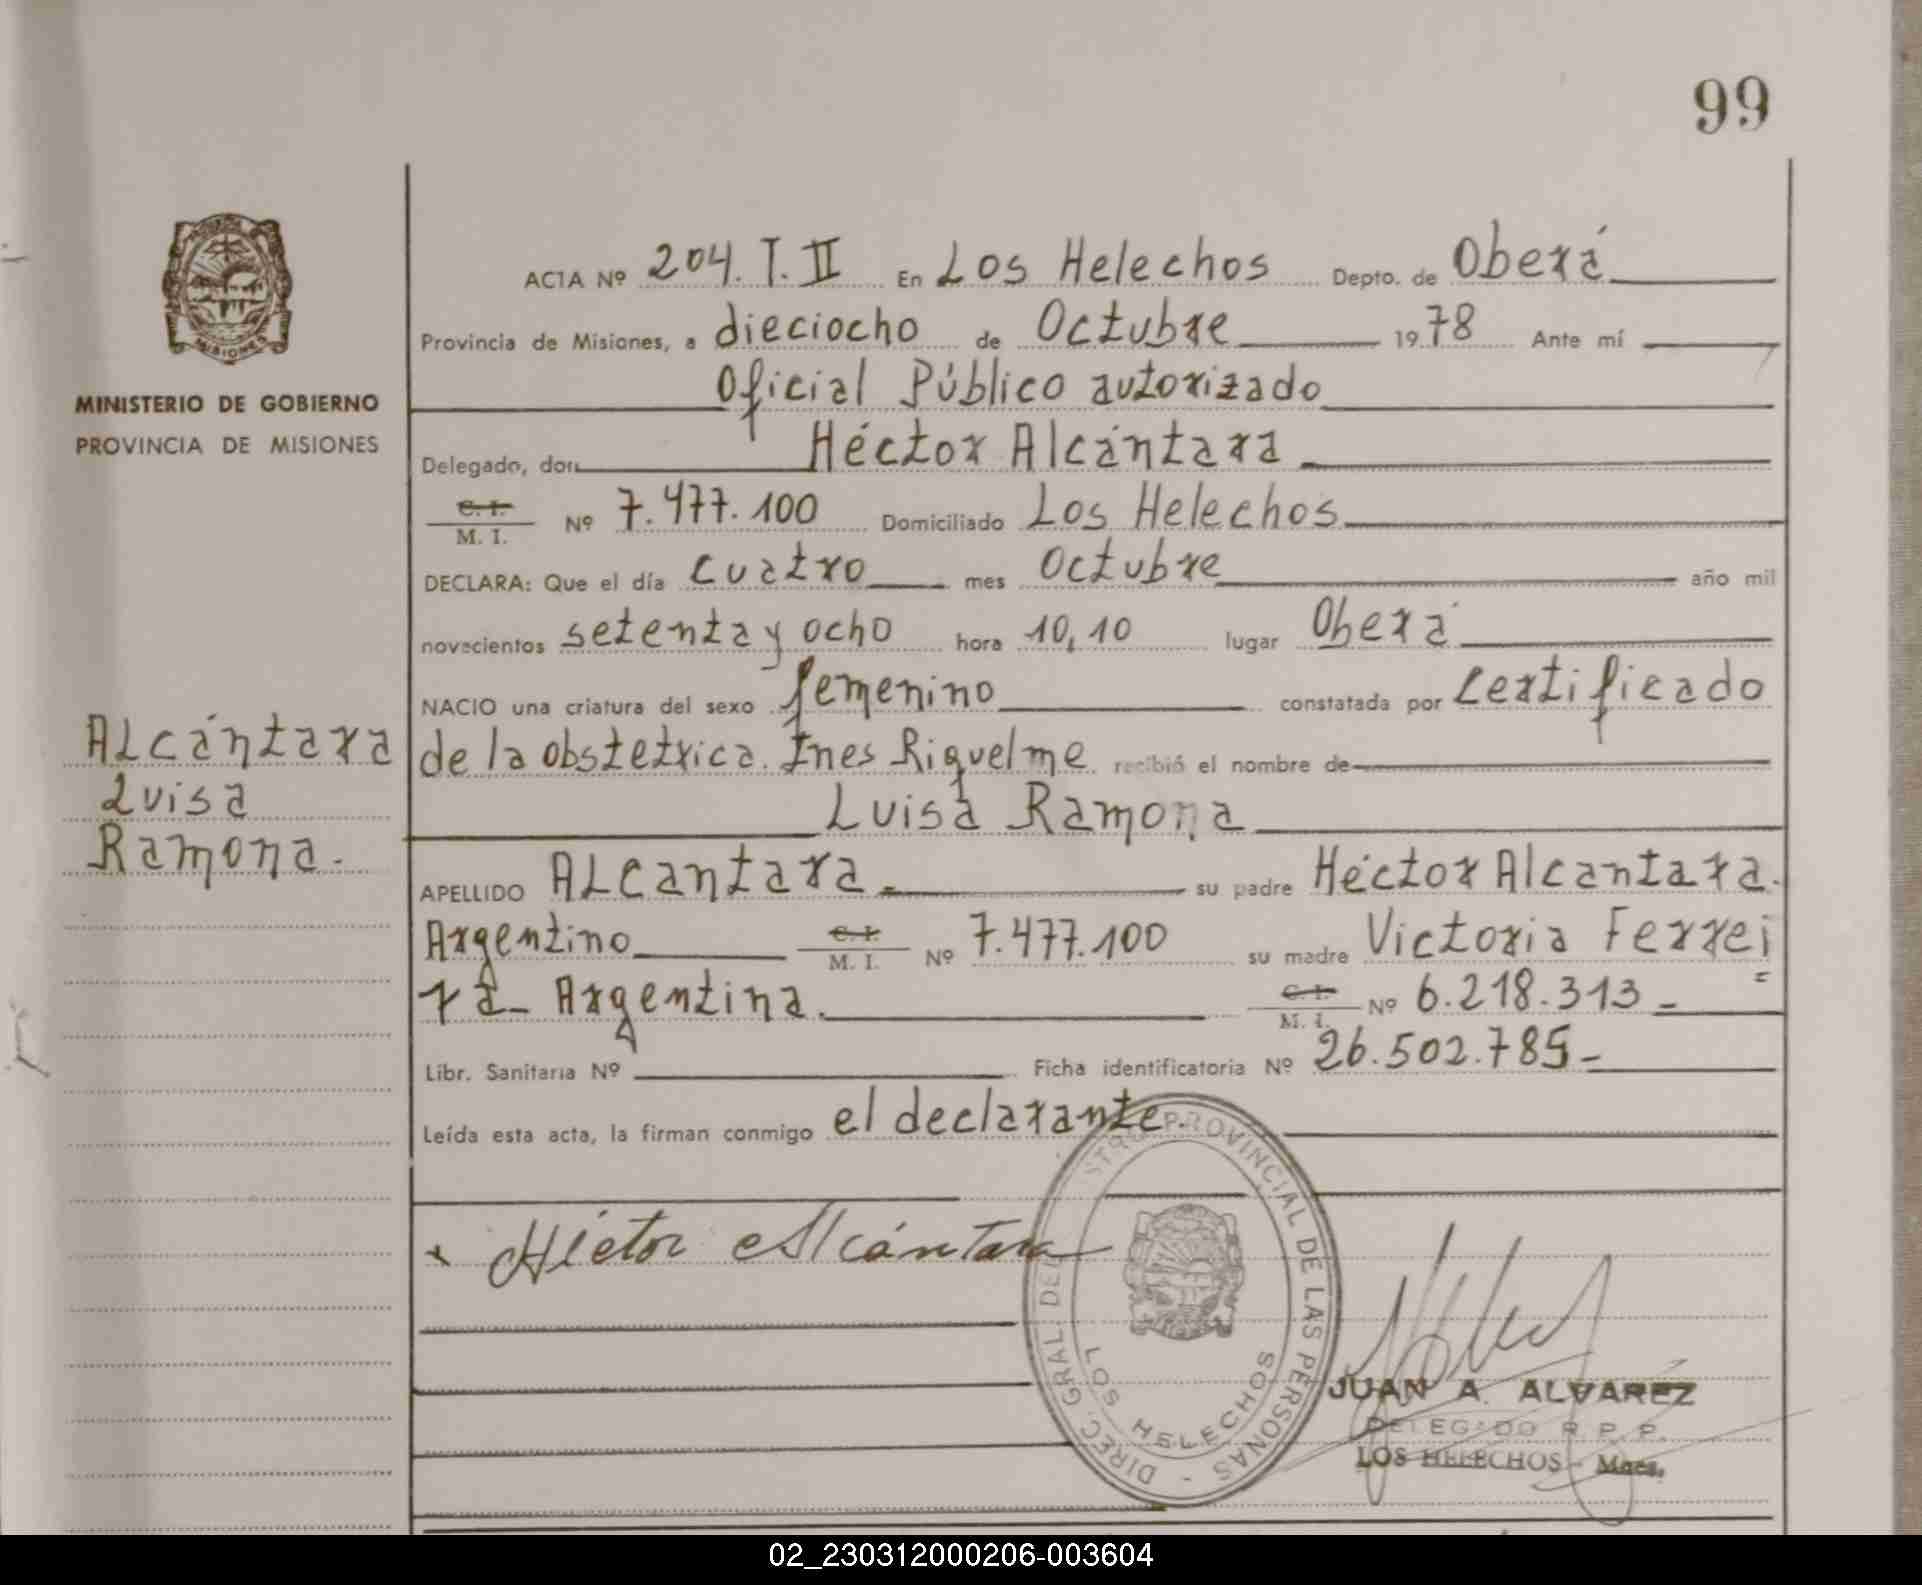 99
ACTA Nº 204. T. II En Los Helechos Depto. de Oberá
Provincia de Misiones, a dieciocho de Octubre 1978 Ante mí
Oficial Público autorizado
MINISTERIO DE GOBIERNO
PROVINCIA DE MISIONES
Delegado, don Héctor Alcántara
C. I.
M. I. Nº 7.477.100 Domiciliado Los Helechos
DECLARA: Que el día cuatro mes Octubre año mil
novecientos setenta y ocho hora 10,10 lugar Oberá
NACIO una criatura del sexo femenino constatada por Certificado
de la obstetrica. Ines Riquelme recibió el nombre de
Luisa Ramona
Alcántara
Luisa
Ramona.
APELLIDO Alcantara su padre Héctor Alcantara.
Argentino C. I. M. I. Nº 7.477.100 su madre Victoria Ferrei
ra - Argentina. C. I. M. I. Nº 6.218.313 -
Libr. Sanitaria Nº Ficha identificatoria Nº 26.502.785 -
Leída esta acta, la firman conmigo el declarante.
x Héctor Alcántara
DIREC. GRAL. DEL STRO PROVINCIAL DE LAS PERSONAS -
LOS HELECHOS
JUAN A. ALVAREZ
DELEGADO R. P. P.
LOS HELECHOS - Mnes.
MISIONES
02_230312000206-003604